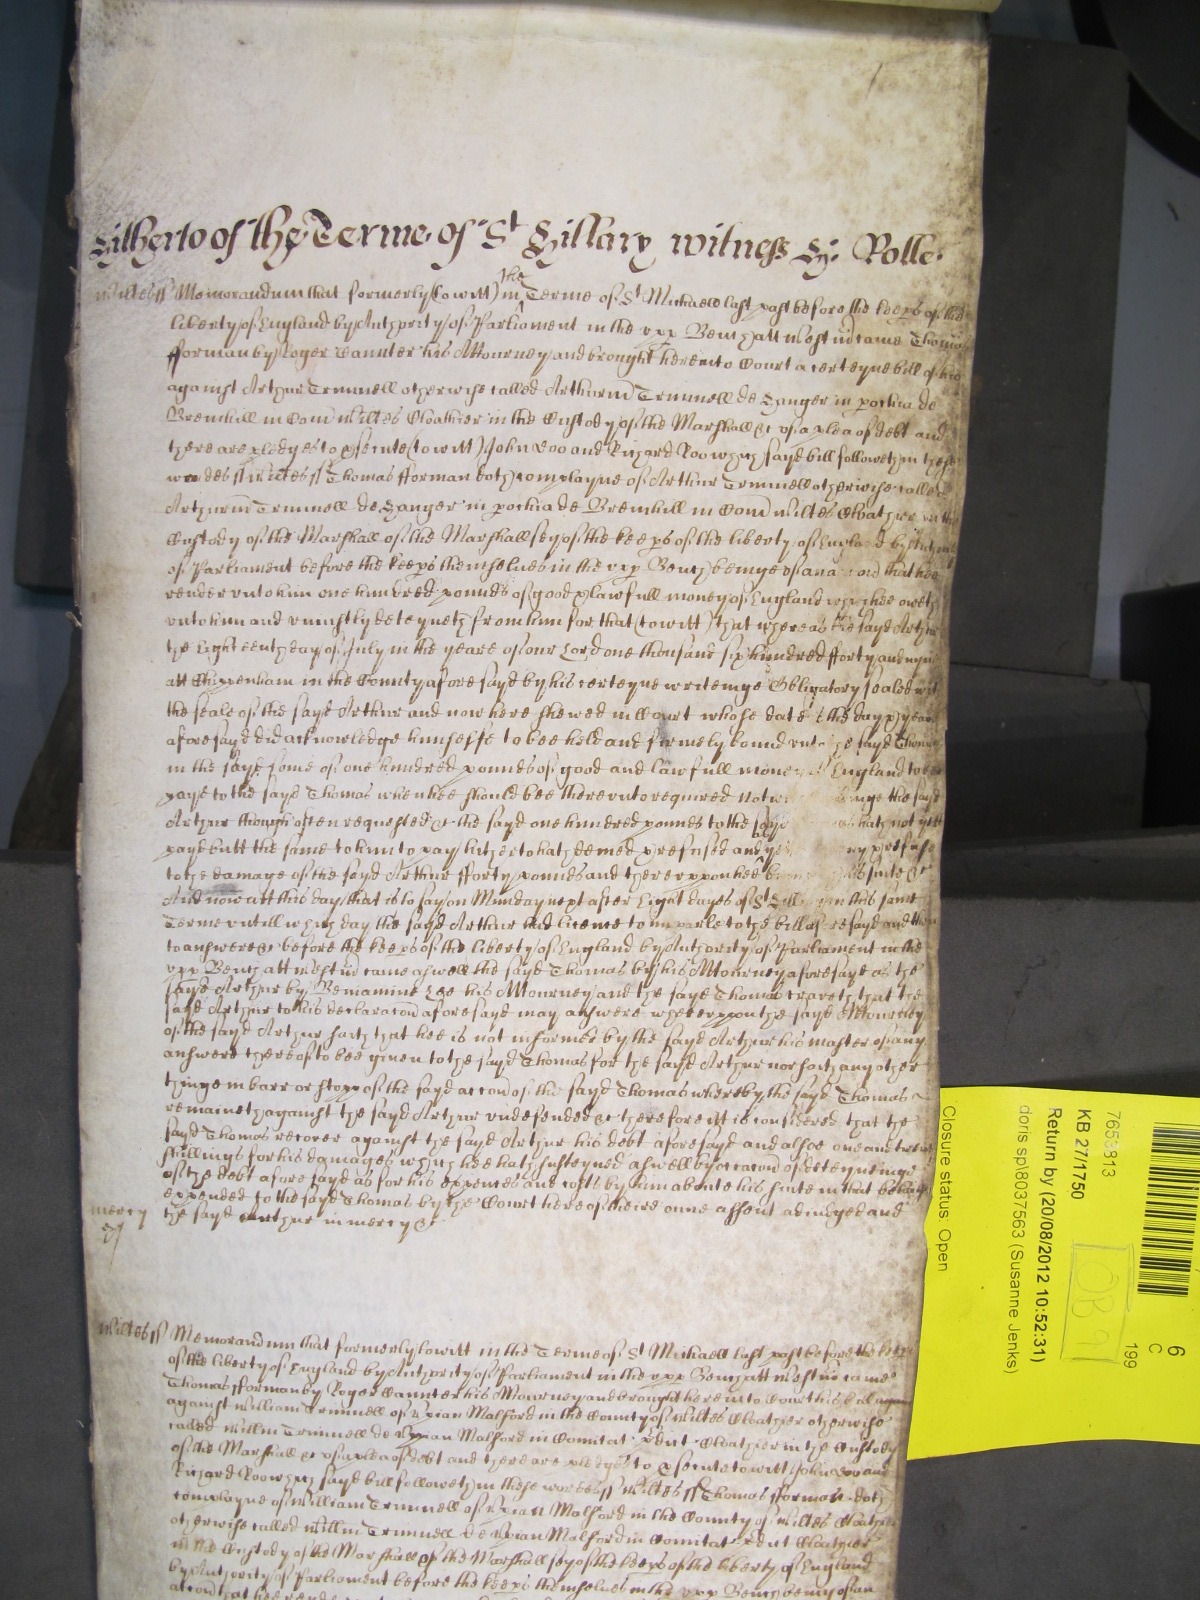 Hitherto of the Terme of St Hillary witness Hy: Rolle.
Wiltes ss Memorandum that formerly (to witt) in the Terme of St Michaell last past before the keeps of the
liberty of England by Authority of Parliament in the vpp Bench att Westm came Thomas
fforman by Roger Cannter his Attourney and brought here into Court a certeyne bill of his
against Arthur Trimnell otherwise called Arthurm Trimnell de Hanger in pochia de
Bremhill in Com Wiltes Cloathier in the Custody of the Marshall &c of a plea of debt and
there are pledges to psecute (to witt) John Doo and Richard Roo which sayd bill followeth in these
wordes ss Wiltes ss Thomas fforman doth complayne of Arthur Trimnell otherwise called
Arthurm Trimnell de Hanger in pochia de Bremhill in Com Wiltes Cloathier in the
Custody of the Marshall of the Marshallsey of the keeps of the liberty of England by
of Parliament before the keeps themselues in the vpp Bench beinge of an that hee
render vnto him one hundred pounds of good & lawfull money of England which hee oweth
vnto him and vniustly deteyneth from him for that (to witt) that whereas the sayd Arthur
the Eighteenth day of July in the yeare of our Lord one thousand six hundred fforty and nyne
att Chippenham in the County aforesayd by his certeyne writeinge Obligatory sealed with
the seale of the sayd Arthur and now here shewed in Court whose date the day & yeare
aforesayd did acknowledge himselfe to bee held and firmely bound vnto the sayd Thomas
in the sayd some of one hundred pounds of good and lawfull money England to bee
payd to the sayd Thomas when hee should bee therevnto required the sayd
Arthur though often requested &c the sayd one hundred pounds to the sayd hath not yet
payd butt the same to him to pay hitherto hath denied & refused and
to the damage of the sayd Arthur fforty pounds and therevppon hee suite &c
And now att this day that is to say on Munday next after Eight dayes of St in this same
Terme vntill which day the sayd Arthur had licence to imparle to the bill aforesayd and then
to answere &c before the keeps of the liberty of England by Authority of Parliament in the
vpp Bench att Westm came aswell the sayd Thomas by his Attourney aforesayd as the
sayd Arthur by Beniamine Lee his Attourney and the sayd Thomas craveth that the
sayd Arthur to his declaracon aforesayd may answere wherevppon the sayd Attourney
of the sayd Arthur saith that hee is not informed by the sayd Arthur his master of any
answere thereof to bee giuen to the sayd Thomas for the sayd Arthur nor saith any other
thinge in barr or stopp of the sayd accon of the sayd Thomas whereby the sayd Thomas
remaineth against the sayd Arthur vndefended &c therefore itt is considered that the
sayd Thomas recover against the sayd Arthur his debt aforesayd and alsoe one and twenty
shillings for his damages which hee hath susteyned aswell by occacon of deteyneinge
of the debt aforesayd as for his expences and costs by him aboute his suite in that behalfe
expended to the sayd Thomas by the Court here of theire owne assent adiudged and
mercy
the sayd Arthur in mercy &c
Wiltes ss Memorandum that formerly to witt in the Terme of St Michaell last past before the keeps
of the liberty of England by Authority of Parliament in the vpp Bench att Westm came
Thomas fforman by Roger Cannter his Attourney and brought here into Court his bill
against William Trimnell of Xpian Malford in the County of Wiltes Cloathier otherwise
called Willm Trimnell de Xpian Malford in Comitat pdict Cloathier in the Custody
of the Marshall &c of a plea of debt and there are pledges to psecute to witt John Doo and
Richard Roo which sayd bill followeth in these wordes ss Wiltes ss Thomas fforman doth
complayne of William Trimnell of Xpian Malford in the County of Wiltes Cloathier
otherwise called Willm Trimnell de Xpian Malford in Comitat pdict Cloathier
in the Custody of the Marshall of the Marshallsey of the keeps of the liberty of England
by Authority of Parliament before the keeps themselues in the vpp Bench being of an
accon that hee render
6
C
199
7653813
KB 27/1750
Return by (20/08/2012 10:52:31)
doris sp\8037563 (Susanne Jenks)
Closure status: Open
OB 91